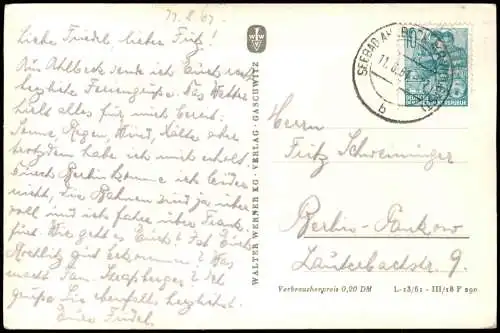 11.8.61.
Liebe Friedel, lieber Fritz!
Aus Ahlbeck sende ich Euch recht
herzliche Feriengrüße. Das Wetter
hielt alles für mich bereit:
Sonne, Regen, Wind, Kälte aber
trotzdem habe ich mich erholt.
Durch Berlin komme ich leider
nicht, die Bahnen sind ja über
voll und ich fahre über Frank-
furt. Wie geht es Euch? Hat Euch
Rochlitz gut
macht Fam. ? Ich
grüße Sie ebenfalls herzlichst.
Eure
WALTER WERNER KG · VERLAG · GASCHWITZ
SEEBAD AHLBECK
11.8.61
b
10
DEUTSCHE DEMOKRATISCHE REPUBLIK
Herrn
Fritz Schweninger
Berlin-Pankow
Lauterbachstr. 9.
Verbraucherpreis 0,20 DM L-13/61 - III/18 F 290